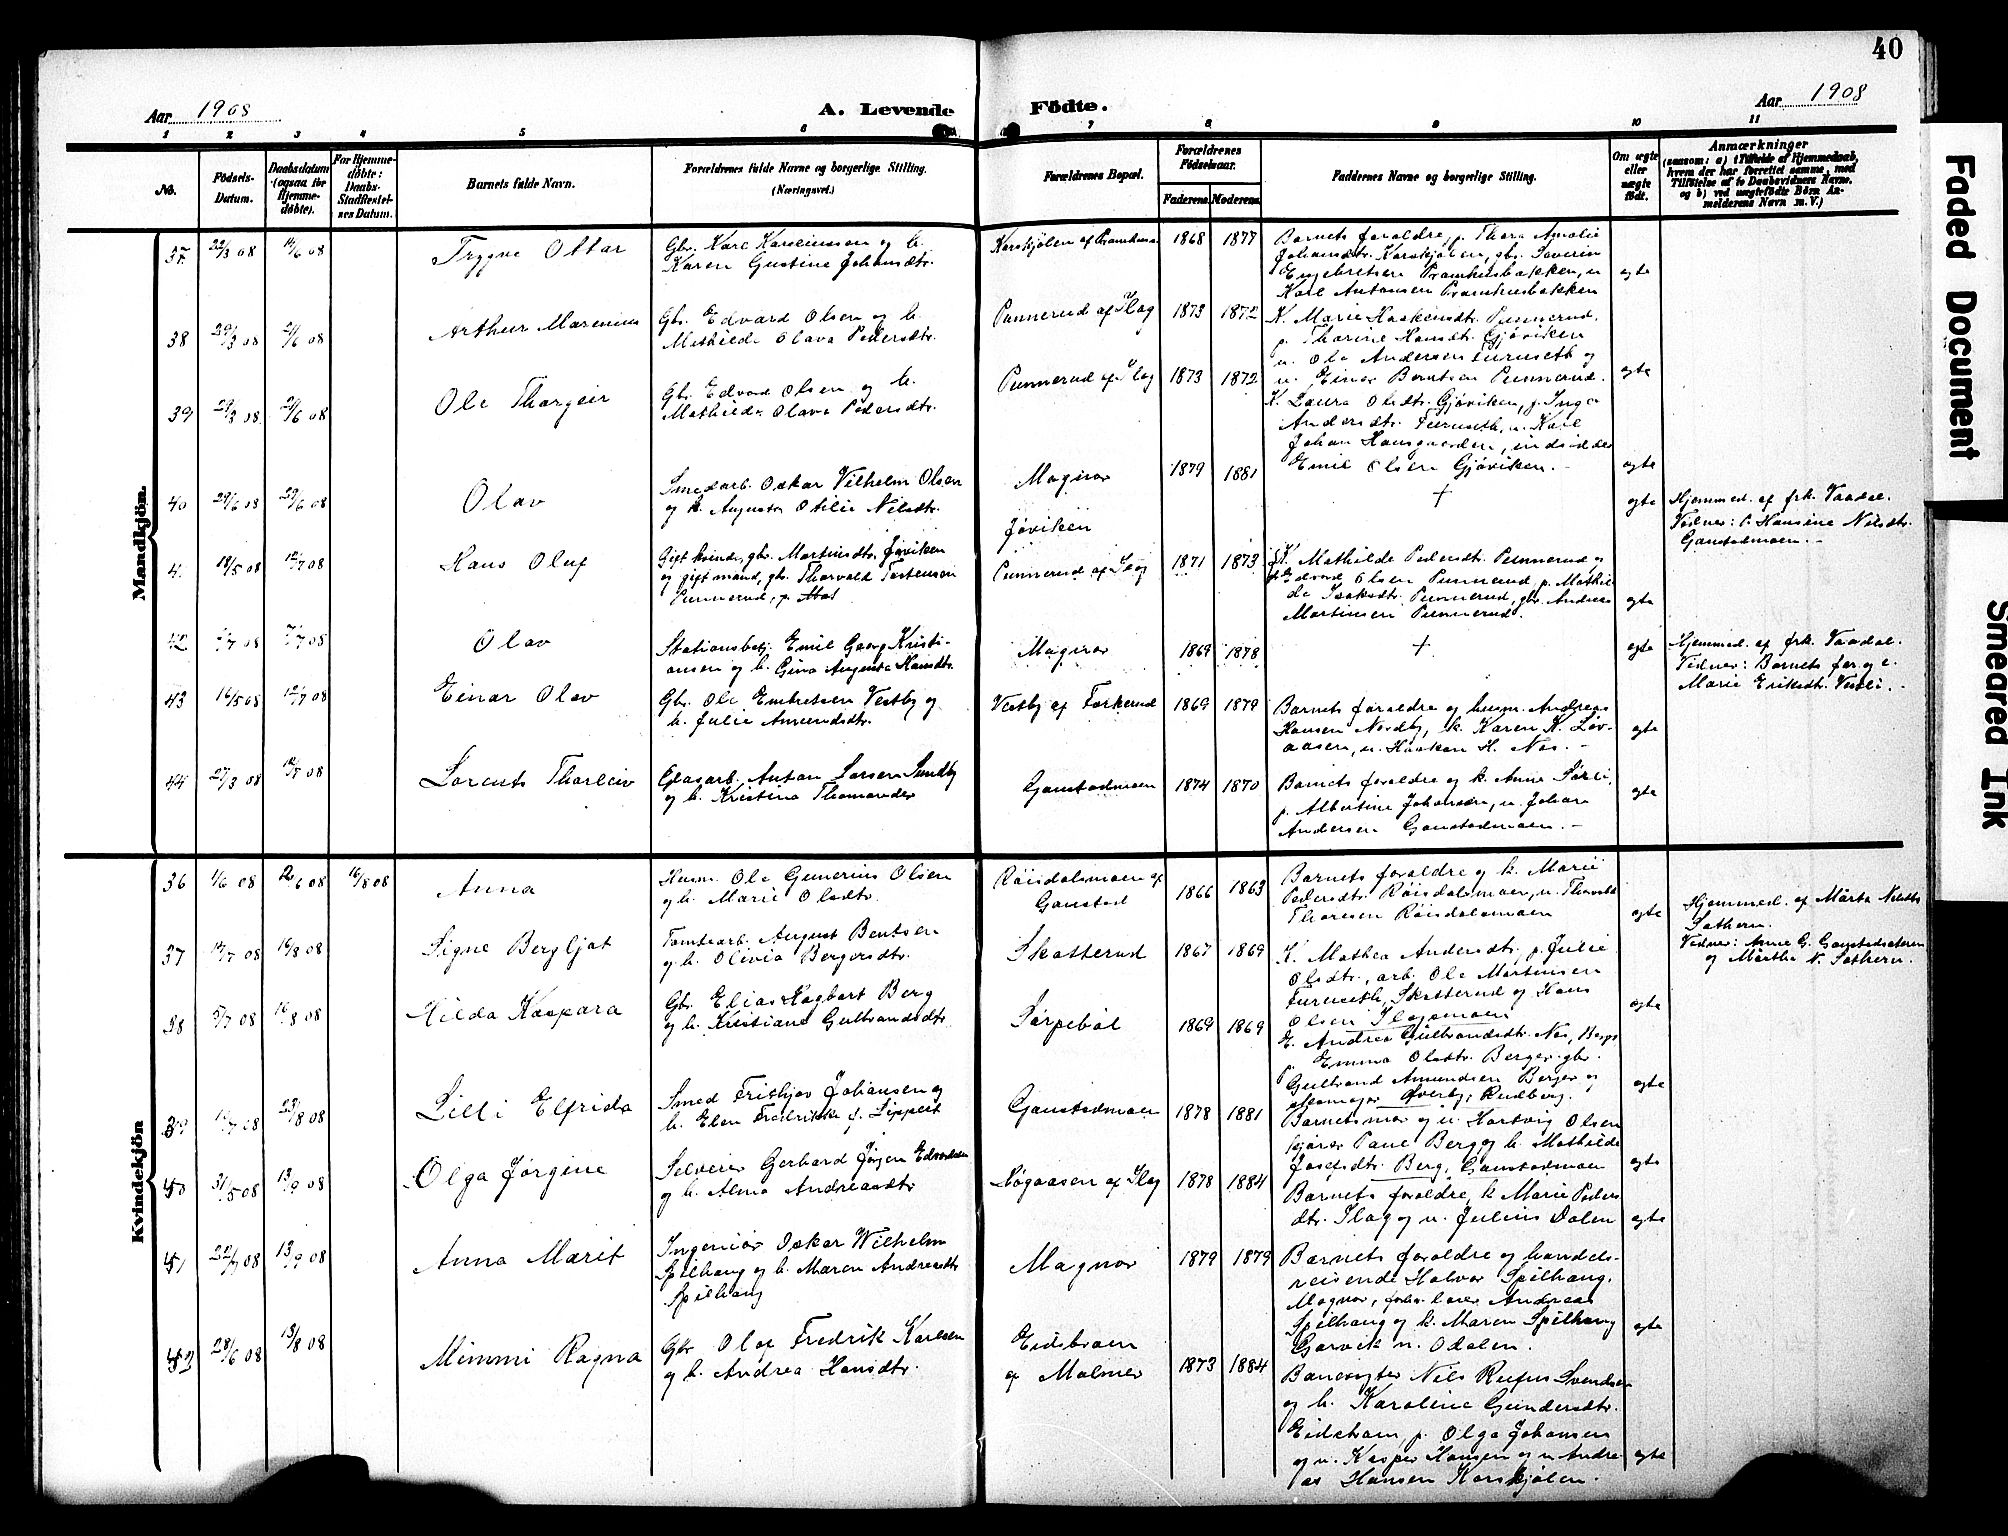 40
Aar 1908
A. Levende Födte.
Aar 1908
1 2 3 4 5 6 7 8 9 10 11
No.
Födsels-Datum.
Daabsdatum (ogsaa for Hjemmedøbte).
For Hjemmedøbte: Daabs-Stadfæstelsenes Datum.
Barnets fulde Navn.
Forældrenes fulde Navne og borgerlige Stilling.
(Næringsvei.)
Forældrenes Bopæl.
Forældrenes Födselsaar.
Faderens. Moderens.
Faddernes Navne og borgerlige Stilling.
Om ægte eller uægte födt.
Anmærkninger
(saasom: a) i Tilfælde af Hjemmedaab, hvem der har forrettet samme, med Tilföielse af to Daabsvidners Navne. og b) ved uægtefödte Börn Anmelderens Navn m. V.)
Mandkjön.
37 22/3 08 14/6 08 Trygve Ottar
Gbr. Kare Karelinssen og h.
Karen Gustine Johansdtr.
Karskjølen af Pramhus 1868 1877
Barnets forældre, p. Thora Amalie
Johansdtr. Karskjølen, gbr. Severin
Engebretsen Pramhusbakken, u
Karl Antonsen Pramhusbakken
ægte
38 29/3 08 21/6 08 Arthur Marenius
Gbr. Edvard Olsen og h.
Mathilde Olava Pedersdtr.
Punnerud af Slag 1873 1872
K. Marie Haakensdtr. Punnerud.
p. Thorine Hansdtr. Gjøviken
u. Ole Andersen Furuseth og
u. Einar Berntsen Punnerud.
ægte
39 29/3 08 21/6 08 Ole Thorgeir
Gbr. Edvard Olsen og h.
Mathilde Olava Pedersdtr.
Punnerud af Slag 1873 1872
K. Laura Olsdtr. Gjøviken, p. Inga
Andersdtr. Furuseth, u. Karl
Johan Hansgaarden, indsidder
Emil Olsen Gjøviken. -
ægte
40 29/6 08 29/6 08 Olav
Smedarb. Oskar Vilhelm Olsen
og h. Augusta Otilie Nilsdtr.
Magnor 1879 1881
+
ægte
Hjemmed. af frk. Vaadal.
Vidner: p. Hansine Nilsdtr.
Ganstadmoen. -
4. 18/5 08 12/7 08 Hans Oluf
Gift kvinde, gbr. Martinsdtr. Jøviken
og gift mand, gbr. Thorvald Torstensen
Punnerud, p. Mat
Jøviken
Punnerud af Slag 1871 1873
K. Mathilde Pedersdtr. Punnerud og
Edvard Olsen Punnerud p. Mathil-
de Isaksdtr. Punnerud, gbr. Andreas
Martinsen Punnerud.
ægte
42 /7 08 7/7 08 Olav
Stationsbetj. Emil Georg Kristi-
ansen og h. Gina Augusta Hansdtr.
Magnor 1869 1878
+
ægte
Hjemmed. af frk. Vaadal.
Vidner: Barnets far og e.
Marie Eriksdtr. Vestli. -
43 16/5 08 12/7 08 Einar Olav
Gbr. Ole Embretsen Vestby og
h. Julie Amundsdtr.
Vestby af Torkerud 1869 1879
Barnets forældre og husm. Andreas
Hansen Nordby, k. Karen K. Løv-
aasen, u. Haakon H. Nes. -
ægte
44 27/3 08 12/5 08 Lorents Thorleiv
Glasarb. Anton Larsen Sundby
og h. Kristina Thomander
Ganstadmoen 1874 1870
Barnets forældre og k. Anne Sørli,
p. Albertine Johansdtr, u. Johan
Andersen Ganstadmoen. -
ægte
Kvindekjön
36 1/6 08 20/6 08 16/8 08 Anna
Husm. Ole Gunerius Olsen
og h. Marie Olsdtr.
Røisdalsmoen af
Ganstad 1866 1863
Barnets forældre og k. Marie
Pedersdtr. Røisdalsmoen, u. Thorvald
Thoresen Røisdalsmoen
ægte
Hjemmed. af Märta Nilsdtr.
Sathern.
Vidner: Anne G. Ganstadsæteren
og Märtha N. Sathern.
37 14/7 08 16/8 08 Signe Bergljot
Tomtearb. August Bentsen
og h. Olivia Bergersdtr.
Skatterud 1867 1869
K. Mathea Andersdtr, p. Julie
Olsdtr., arb. Ole Martinsen
Furuseth, Skatterud og Hans
Olsen Slagsmoen
ægte
38 5/7 08 16/8 08 Hilda Kaspara
Gbr. Elias Hagbart Berg
og h. Kristiane Gulbrandsdtr.
Sørpebøl 1869 1869
E. Andrea Gulbrandsdtr. Nes, Berger
p. Emma Olsdtr. Berger. gbr.
Gulbrand Amundsen Berger og
Øverby, Rudberg.
ægte
39 /7 08 23/8 08 Lilli Elfrida
Smed Frithjov Johansen og
h. Elen Fredrikke f. Lippert
Ganstadmoen 1878 1881
Barnets mor og u. Hartvig Olsen
kjører Paul Berg, og h. Mathilde
Josefsdtr. Berg, Ganstadmoen
ægte
40 31/5 08 13/9 08 Olga Jørgine
Selveier Gerhard Jørgen Edvardsen
og h. Alma Andreasdtr
Løgaasen af Slag 1878 1884
Barnets forældre, k. Marie Peders
dtr. Slag og u. Julius Dalen
ægte
41 22/7 08 13/9 08 Anna Marit
Ingeniør Oskar Wilhelm
Spilhaug og h. Maren Andreasdtr
Spilhaug
Magnor 1879 1879
Barnets forældre og handels-
reisende Halvor Spilhaug.
Magnor, forh. lærer Andreas
Spilhaug og k. Maren Spilhaug
Garvik n. Odalen.
ægte
42 28/6 08 13/8 08 Mimmi Ragna
Gbr. Olaf Fredrik Karlsen
og h. Andrea Hansdtr.
Eidsbraen
af Malmer 1873 1884
Banevogter Nils Rufus Svendsen
og h. Karoline Gundersdtr.
Eidsbraen, p. Olga Johansen
og u. Kasper Hansen og u Andre
as Hansen Karskjølen.
ægte
Faded Document
Smeared Ink